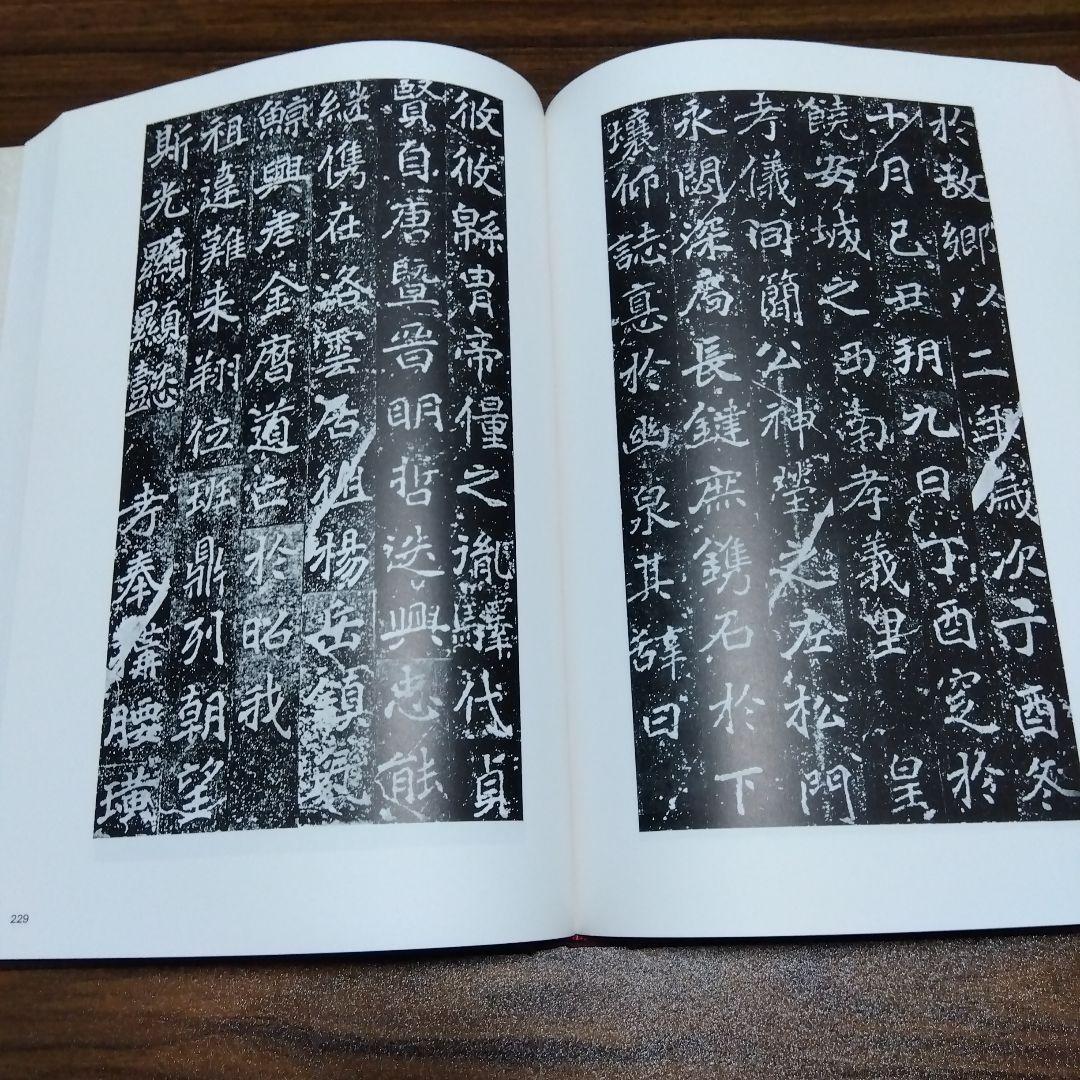 於故鄉以二年歲次丁酉冬
十月己丑朔九日丁酉窆於
饒安城之西南孝義里皇
考儀同簡公神塋之左松門
永閟深扃長鍵庶鐫石於下
壤仰誌惪於幽泉其辭曰
攸攸緜胄帝僵之胤驛代貞
賢自唐暨晉明哲迭興忠能
继儁在洛雲居徂楊岳鎮寔
鯨興虐金曆道亡於昭我
祖違難来翔位班鼎列朝望
斯光顯顯懿 考奉構腰璜
229